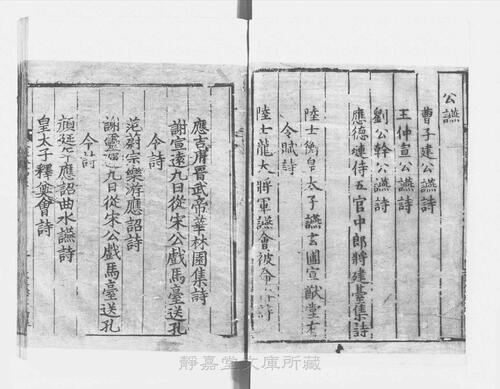 公讌
曹子建公讌詩
王仲宣公讌詩
劉公幹公讌詩
應德璉侍五官中郎將建章臺集詩
陸士衡皇太子讌玄圃宣猷堂有
令賦詩
陸士龍大將軍讌會被命作詩
應吉甫晉武帝華林園集詩
謝宣遠九日從宋公戲馬臺送孔
令詩
范蔚宗樂游應詔詩
謝靈運九日從宋公戲馬臺送孔
令詩
顏延年應詔曲水讌詩
皇太子釋奠會詩
靜嘉堂文庫所藏